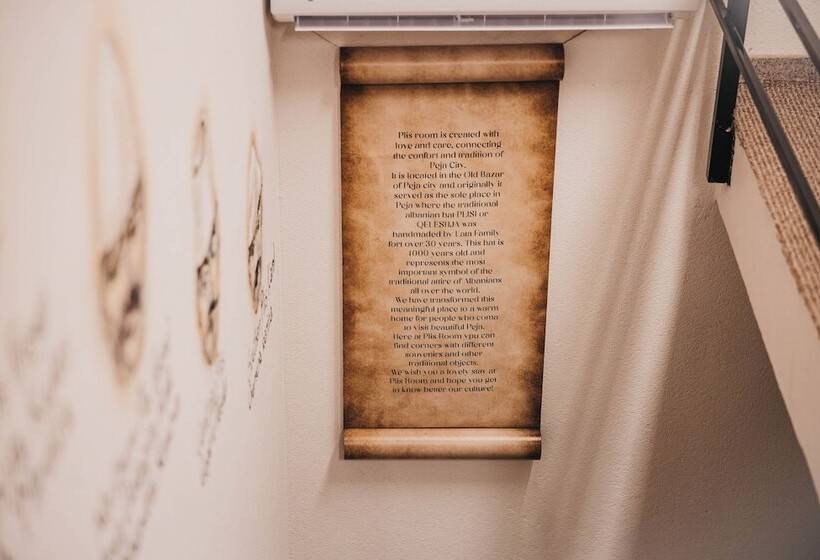 Plis room is created with
love and care, connecting
the comfort and tradition of
Peja City.
It is located in the Old Bazar
of Peja city and originally it
served as the sole place in
Peja where the traditional
albanian hat PLISI or
QELESHJA was
handmaded by Lata Family
fort over 30 years. This hat is
1000 years old and
represents the most
important symbol of the
traditional attire of Albanians
all over the world.
We have transformed this
meaningful place to a warm
home for people who coma
to visit beautiful Peja.
Here at Plis Room ypu can
find corners with different
souvenirs and other
traditional objects.
We wish you a lovely stay at
Plis Room and hope you get
to know better our culture!